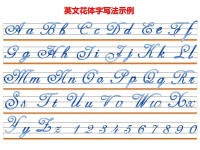 英文花体字写法示例
Aa Bb Cc Dd Ee Ff
Gg Hh Ii Jj Kk Ll
Mm Nn Oo Pp Qq Rr
Ss Tt Uu Vv Ww Xx
Yy Zz 1 2 3 4 5 6 7 8 9 0